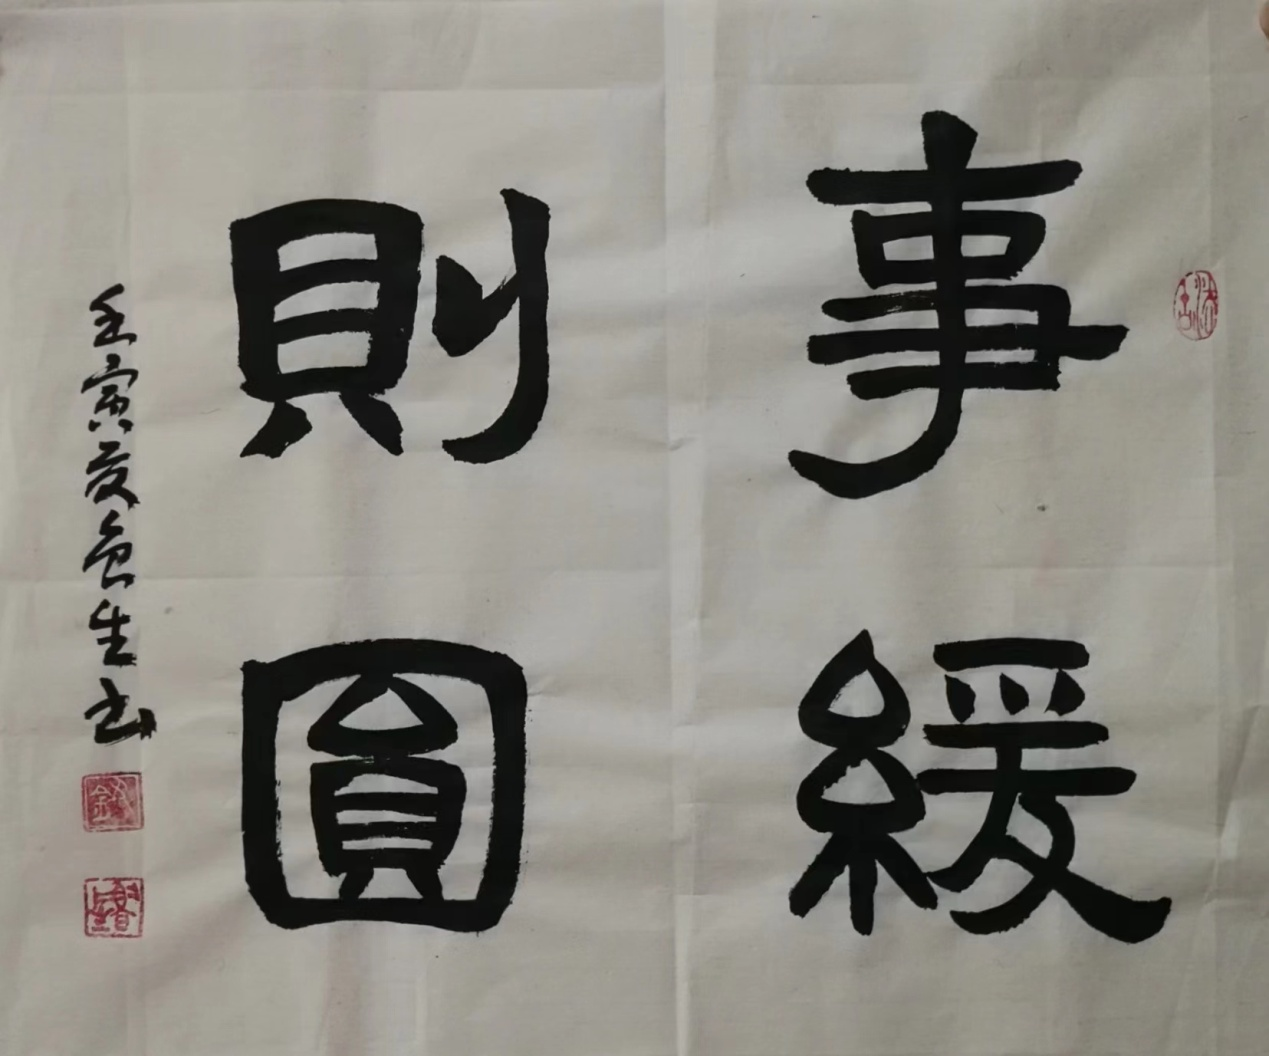 事緩
則圓
壬寅夏
生书